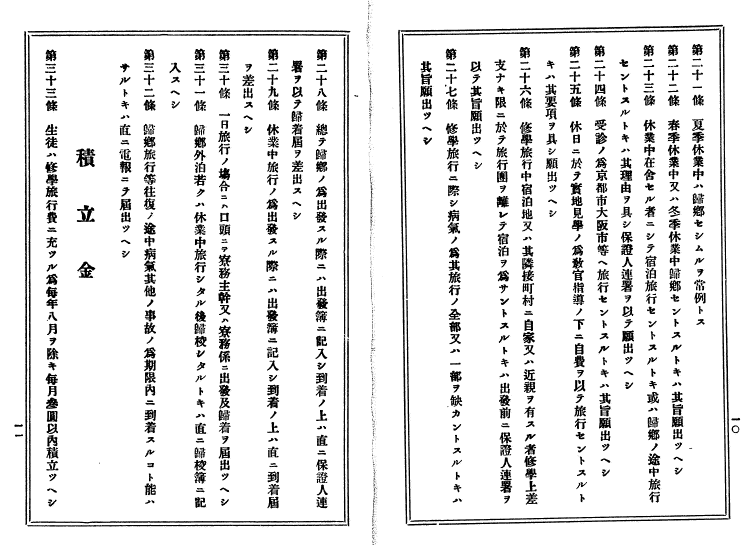 第二十一條 夏季休業中ハ歸鄕セシムルヲ常例トス
第二十二條 春季休業中又ハ冬季休業中歸鄕セントスルトキハ其旨願出ツヘシ
第二十三條 休業中在舍セル者ニシテ宿泊旅行セントスルトキ或ハ歸鄕ノ途中旅行
セントスルトキハ其理由ヲ具シ保證人連署ヲ以テ願出ツヘシ
第二十四條 受診ノ爲京都市大阪市等ヘ旅行セントスルトキハ其旨願出ツヘシ
第二十五條 休日ニ於テ實地見學ノ爲敎官指導ノ下ニ自費ヲ以テ旅行セントスルト
キハ其要項ヲ具シ願出ツヘシ
第二十六條 修學旅行中宿泊地又ハ其隣接町村ニ自家又ハ近親ヲ有スル者修學上差
支ナキ限ニ於テ旅行團ヲ離レテ宿泊ヲ爲サントスルトキハ出發前ニ保證人連署ヲ
以テ其旨願出ツヘシ
第二十七條 修學旅行ニ際シ病氣ノ爲其旅行ノ全部又ハ一部ヲ缺カントスルトキハ
其旨願出ツヘシ
一〇
第二十八條 總テ歸鄕ノ爲出發スル際ニハ出發簿ニ記入シ到着ノ上ハ直ニ保證人連
署ヲ以テ歸着屆ヲ差出スヘシ
第二十九條 休業中旅行ノ爲出發スル際ニハ出發簿ニ記入シ到着ノ上ハ直ニ到着屆
ヲ差出スヘシ
第三十條 一日旅行ノ場合ニハ口頭ニテ寮務主幹又ハ寮務係ニ出發及歸着ヲ屆出ツヘシ
第三十一條 歸鄕外泊若クハ休業中旅行シタル後歸校シタルトキハ直ニ歸校簿ニ記
入スヘシ
第三十二條 歸鄕旅行等往復ノ途中病氣其他ノ事故ノ爲期限內ニ到着スルコト能ハ
サルトキハ直ニ電報ニテ屆出ツヘシ
積立金
第三十三條 生徒ハ修學旅行費ニ充ツル爲每年八月ヲ除キ每月叄圓以內積立ツヘシ
一一